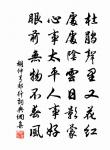 杜鵑聲里又花
處處陰雲日影
心事太平人事好
眼前無物不春風
胡仲弓郊行詩詞典網集